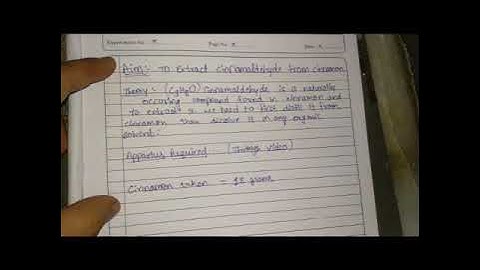 Experiment No.
Page No.
Date
Aim:- To Extract Cinnamaldehyde from Cinnamon
Theory:- (C9H8O) Cinnamaldehyde is a naturally
occuring compound found in cinnamon and
to extract it we have to first distil it from
cinnamon then dissolve it in any organic
solvent.
Apparatus Required
Cinnamon taken = 11 grams